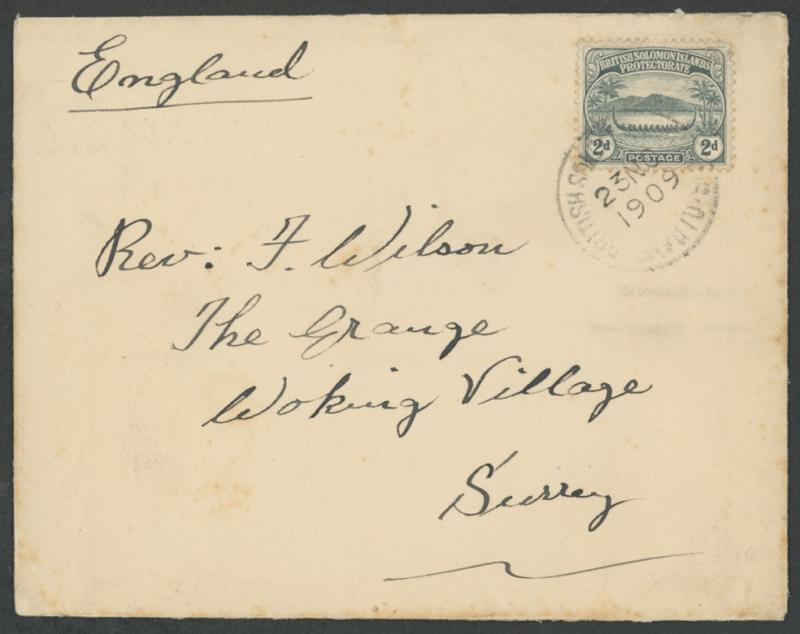 England
BRITISH SOLOMON ISLANDS
PROTECTORATE
2d POSTAGE 2d
BRITISH
23 NO
1909
Rev: F. Wilson
The Grange
Woking Village
Surrey